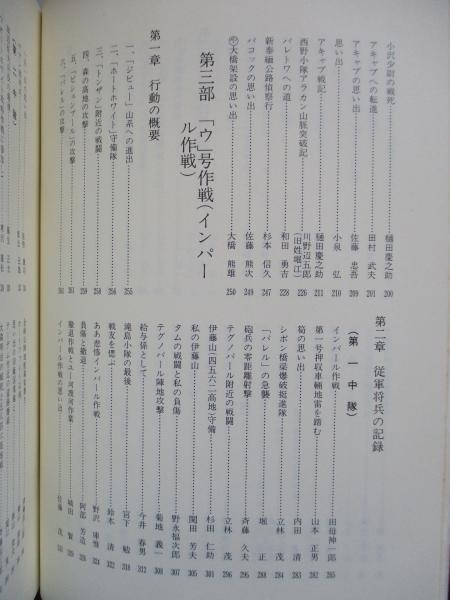 小沢少尉の戦死 樋田慶之助 200
アキャブへの転進 田村武夫 201
アキャブの思い出 佐藤忠吾 209
思い出 小泉弘 210
アキャブ戦記 樋田慶之助 211
西野小隊アラカン山脈突破記 川野辺五郎(旧姓堀江) 226
パレトワへの道 和田勇吉 228
新泰緬公路偵察行 杉本信久 247
パコックの思い出 佐藤熊次 249
大橋架設の思い出 大橋熊雄 250
第三部 「ウ」号作戦(インパール作戦)
第一章 行動の概要
一、「ジビュー」山系への進出 255
二、「ホートホワイト」守備隊
三、「トンザン」附近の戦闘
四、森の高地の攻撃 259
五、「ビシェンプール」の攻撃
六、「パレル」の攻撃
第二章 従軍将兵の記録
(第一中隊)
インパール作戦 田母神一郎 265
第一号押収車輛地雷を踏む 山本正男 282
筍の思い出 内田清 283
シボン橋梁爆破挺進隊 立林茂 284
「パレル」の急襲 堀正 288
砲兵の零距離射撃 斉藤久夫 295
テグノパール附近の戦闘 立林茂 296
伊藤山(四五六二高地)守備 杉田仁助 301
私の伊藤山 関田芳夫 305
タムの戦闘と私の負傷 野永福次郎 307
テグノパール陣地攻撃 菊地義一 308
給与係として 今井春男 312
滝島小隊の最後 宮下勉 318
戦友を偲ぶ 鈴木清
ああ悲惨インパール作戦 野沢庫惣
負傷と撤退 阿部芳造
撤退作戦とユー河渡河作業 城田賢
インパール作戦の思い出 佐藤茂